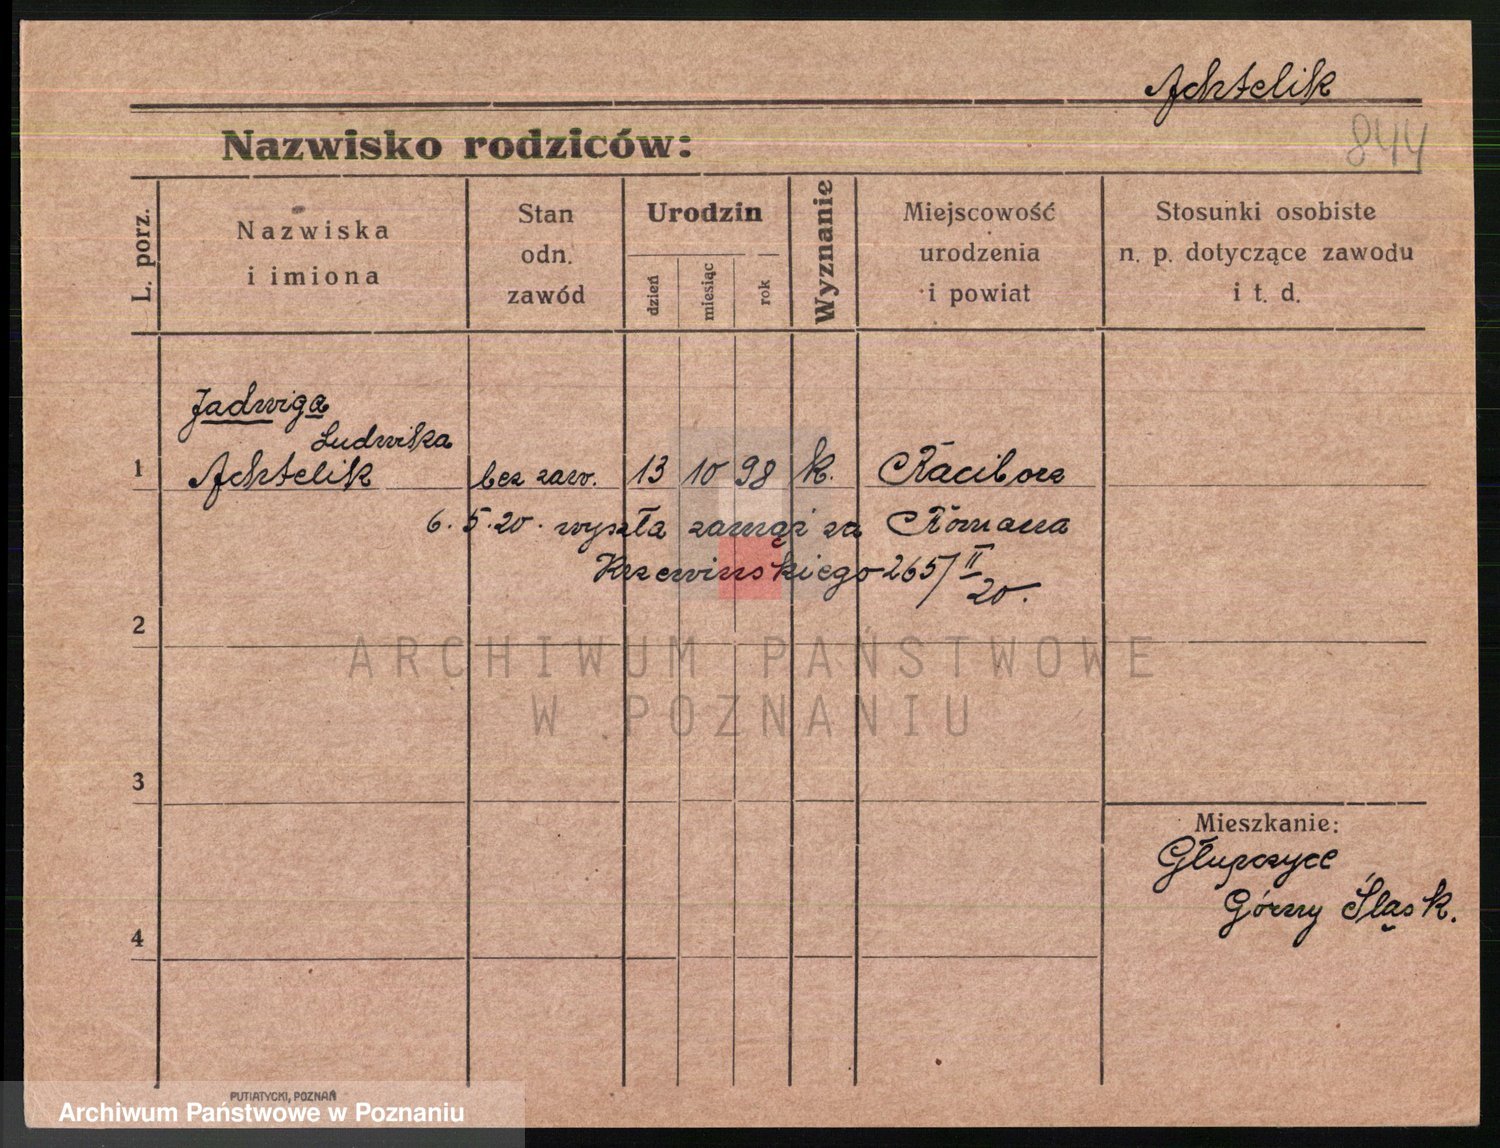 Achtelik
844
Nazwisko rodziców:
L. porz.
Nazwiska
i imiona
Stan
odn.
zawód
Urodzin
dzień
miesiąc
rok
Wyznanie
Miejscowość
urodzenia
i powiat
Stosunki osobiste
n. p. dotyczące zawodu
i t. d.
Jadwiga
Ludwika
1 Achtelik bez zaw. 13 10 98 k. Racibor
6.5.20. wyszła zamąż za Romana
Krzewinskiego 265/II
20.
2
ARCHIWUM PAŃSTWOWE
W POZNANIU
3
Mieszkanie:
Głupczyce
Górny Śląsk.
4
PUTIATYCKI, POZNAŃ
Archiwum Państwowe w Poznaniu